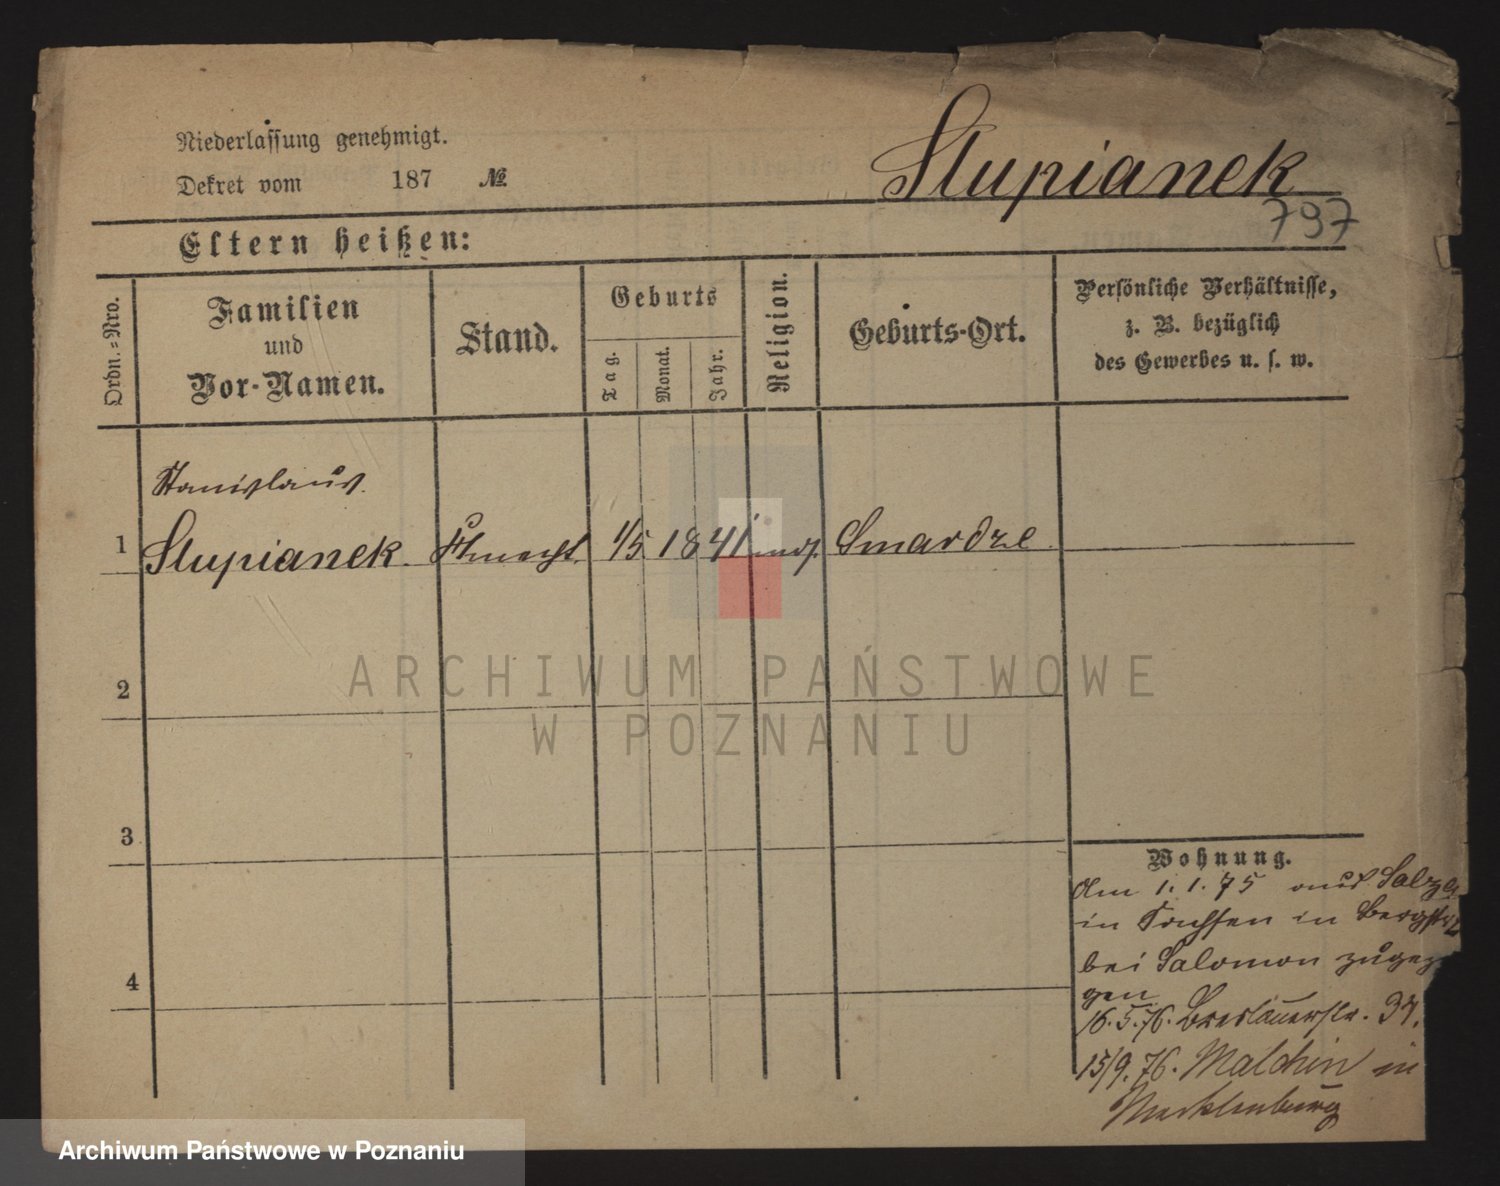 Niederlassung genehmigt.
Dekret vom 187 №
Stupianek
797
Eltern heißen:
Ordn.=Nro.
Familien und Vor-Namen.
Stand.
Geburts
Tag.
Monat.
Jahr.
Religion.
Geburts-Ort.
Persönliche Verhältnisse,
z. B. bezüglich
des Gewerbes u. s. w.
Stanislaus
1 Stupianek. Knecht 1/5 1841 Smardze
2
3
4
Wohnung.
Am 1.1.75 aus
in Sachsen in Bergstr
bei Salomon zugezo
gen
16.5.76. Breslauerstr. 37.
15/9.76. Malchin in
Mecklenburg
ARCHIWUM PAŃSTWOWE
W POZNANIU
Archiwum Państwowe w Poznaniu